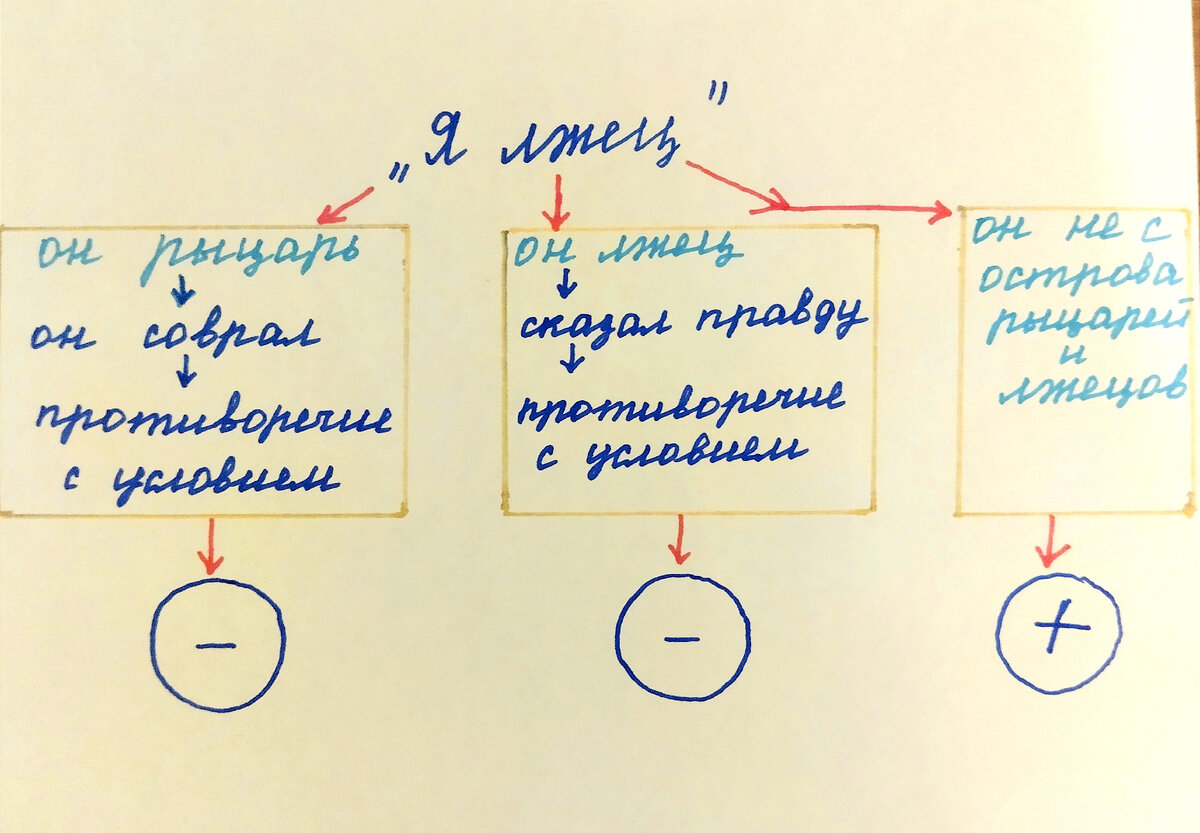 „Я лжец”
он рыцарь
он соврал
противоречие
с условием
−
он лжец
сказал правду
противоречие
с условием
−
он не с
острова
рыцарей
и
лжецов
+